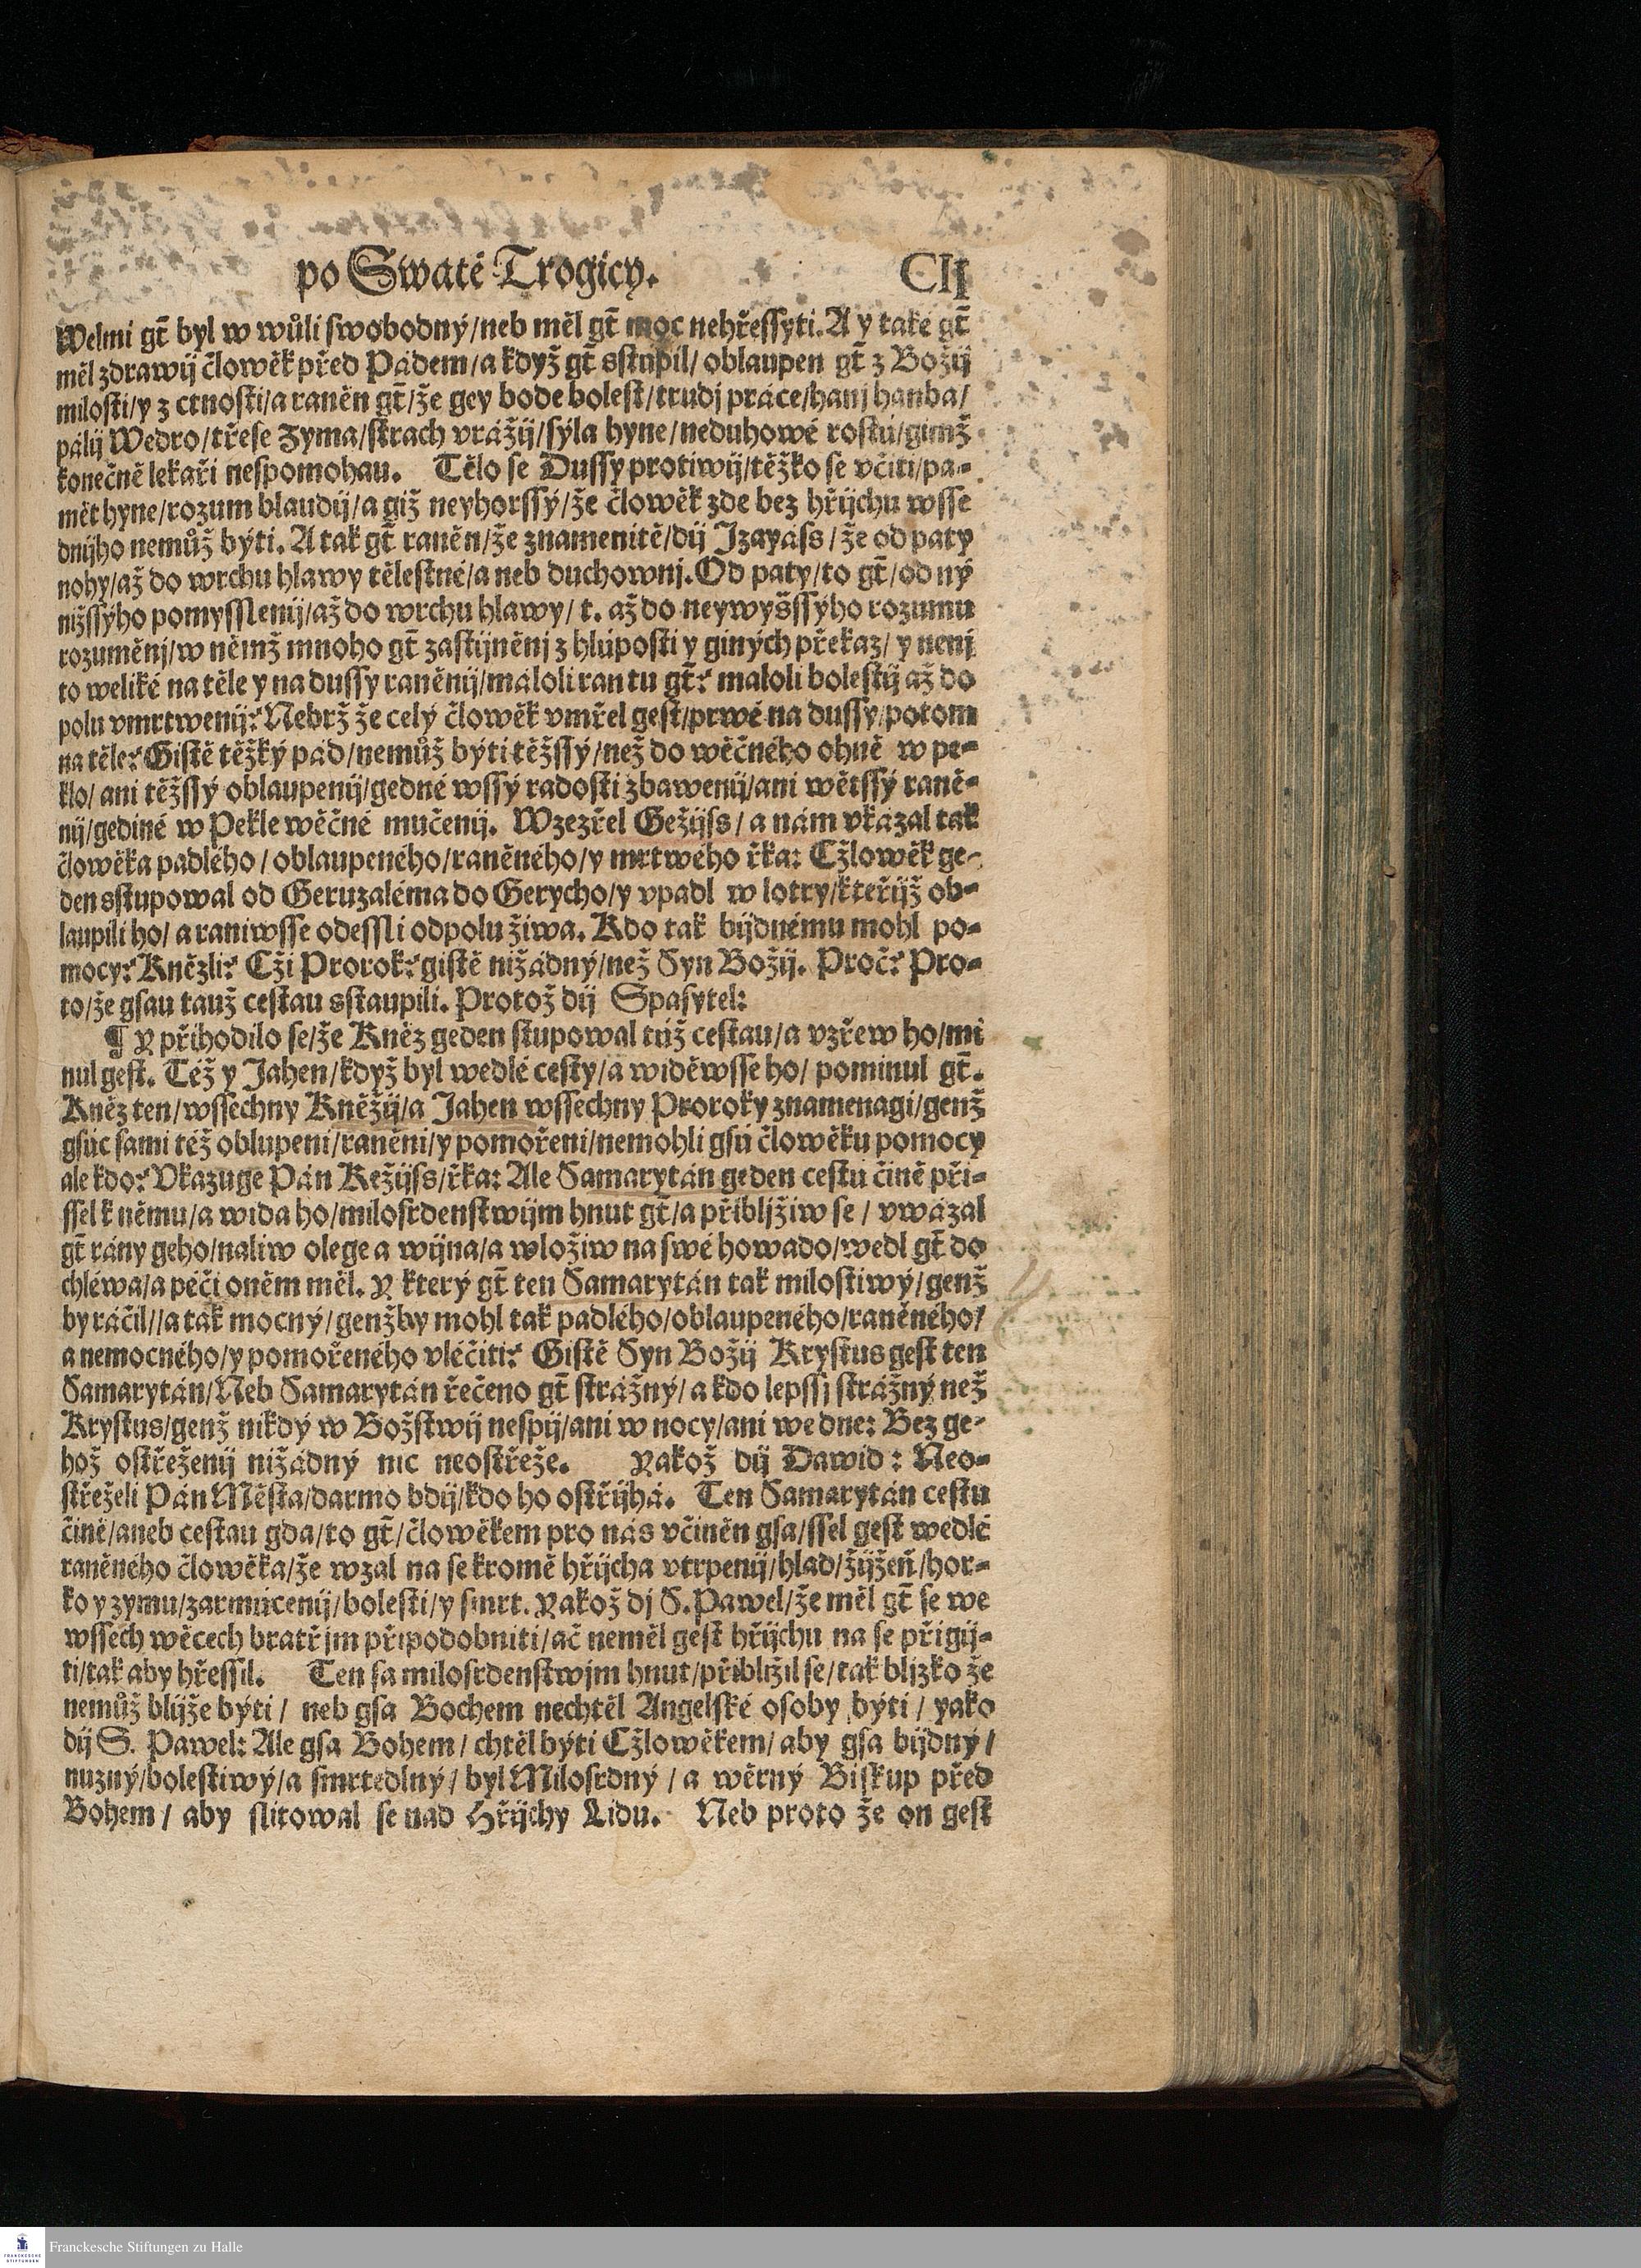 po Swaté Trogicy. CII
Welmi gt̃ byl w wůli swobodný/neb měl gt̃ moc nehřessyti. A y také gt̃
měl zdrawij člowěk před Pádem/a když gt̃ sstúpil/oblaupen gt̃ z Božij
milosti/y z ctnosti/a raněn gt̃/že gey bode bolest/trudj práce/hanj hanba/
pálij Wedro/třese Zyma/strach vrážij/sýla hyne/neduhowé rostú/gimž
konečně lekaři nespomohau. Tělo se Dussy protiwij/těžko se včiti/pa-
mět hyne/rozum blaudij/a giž neyhorssý/že člowěk zde bez hřijchu wsse
dnijho nemůž býti. A tak gt̃ raněn/že znamenitě/dij Izayáss/že od paty
nohy/až do wrchu hlawy tělestné/a neb duchownj. Od paty/to gt̃/od ný
nižssýho pomysslenij/až do wrchu hlawy/t. až do neywyšssýho rozumu
rozuměnj/w němž mnoho gt̃ zastijněnj z hlúposti y giných překaz/y nenj
to weliké na těle y na dussy raněnij/máloli ran tu gt̃? maloli bolestij až do
polu vmrtwenij? Nebrž že celý člowěk vmřel gest/prwé na dussy/potom
na těle? Gistě těžký pád/nemůž býti těžssý/než do wěčného ohně w pe-
klo/ani těžssý oblaupenij/gedné wssý radosti zbawenij/ani wětssý raně-
nij/gediné w Pekle wěčné mučenij. Wzezřel Gežijss/a nám vkázal tak
člowěka padlého/oblaupeného/raněného/y mrtwého řka: Cžlowěk ge-
den sstupowal od Geruzaléma do Gerycho/y vpadl w lotry/kteřijž ob-
laupili ho/a raniwsse odessli odpolu žiwa. Kdo tak bijdnému mohl po-
mocy? Knězli? Cži Prorok? gistě nižádný/než Syn Božij. Proč? Pro-
to/že gsau tauž cestau sstaupili. Protož dij Spasytel:
¶ Y přihodilo se/že Kněz geden stupowal túž cestau/a vzřew ho/mi
nul gest. Též y Jahen/když byl wedlé cesty/a widěwsse ho/pominul gt̃.
Kněz ten/wssechny Kněžij/a Jahen wssechny Proroky znamenagi/genž
gsúc sami též oblupeni/raněni/y pomořeni/nemohli gsú člowěku pomocy
ale kdo? Vkazuge Pán Kežijss/řka: Ale Samarytán geden cestu čině při-
ssel k němu/a wida ho/milosrdenstwijm hnut gt̃/a přibljžiw se/vwázal
gt̃ rány geho/naliw olege a wijna/a wložiw na swé howado/wedl gt̃ do
chléwa/a péči o něm měl. Y který gt̃ ten Samarytán tak milostiwý/genž
by ráčil//a tak mocný/genžby mohl tak padlého/oblaupeného/raněného/
a nemocného/y pomořeného vléčiti? Gistě Syn Božij Krystus gest ten
Samarytán/Neb Samarytán řečeno gt̃ strážný/a kdo lepssj strážný než
Krystus/genž nikdý w Božstwij nespij/ani w nocy/ani we dne: Bez ge-
hož ostřeženij nižádný nic neostřeže. Yakož dij Dawid: Neo-
střeželi Pán Města/darmo bdij/kdo ho ostřijhá. Ten Samarytán cestu
čině/aneb cestau gda/to gt̃/člowěkem pro nás včiněn gsa/ssel gest wedlé
raněného člowěka/že wzal na se kromě hřijcha vtrpenij/hlad/žijžeň/hor-
ko y zymu/zarmúcenij/bolesti/y smrt. Yakož dj S. Pawel/že měl gt̃ se we
wssech wěcech bratřjm připodobniti/ač neměl gest hřijchu na se přigij-
ti/tak aby hřessil. Ten sa milosrdenstwjm hnut/přibližil se/tak bljzko že
nemůž blijže býti/ neb gsa Bochem nechtěl Angelské osoby býti/ yako
dij S. Pawel: Ale gsa Bohem/ chtěl býti Cžlowěkem/ aby gsa bijdný/
nuzný/bolestiwý/a smrtedlný/ byl Milosrdný/ a wěrný Biskup před
Bohem/ aby slitowal se nad Hřijchy Lidu. Neb proto že on gest
Franckesche Stiftungen zu Halle
FRANCKESCHE
STIFTUNGEN